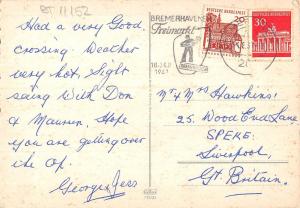 BT 11152
Had a very Good
crossing. Weather
very hot, Sight
saing With Don
& Maureen, Hope
you are getting over
the Op.
George & Jess
BREMERHAVENER
Freimarkt
1967
DEUTSCHE BUNDESPOST
20
30
Mr & Mrs Hawkins!
25, Wood End Lane,
SPEKE:
Liverpool,
Gt. Britain.